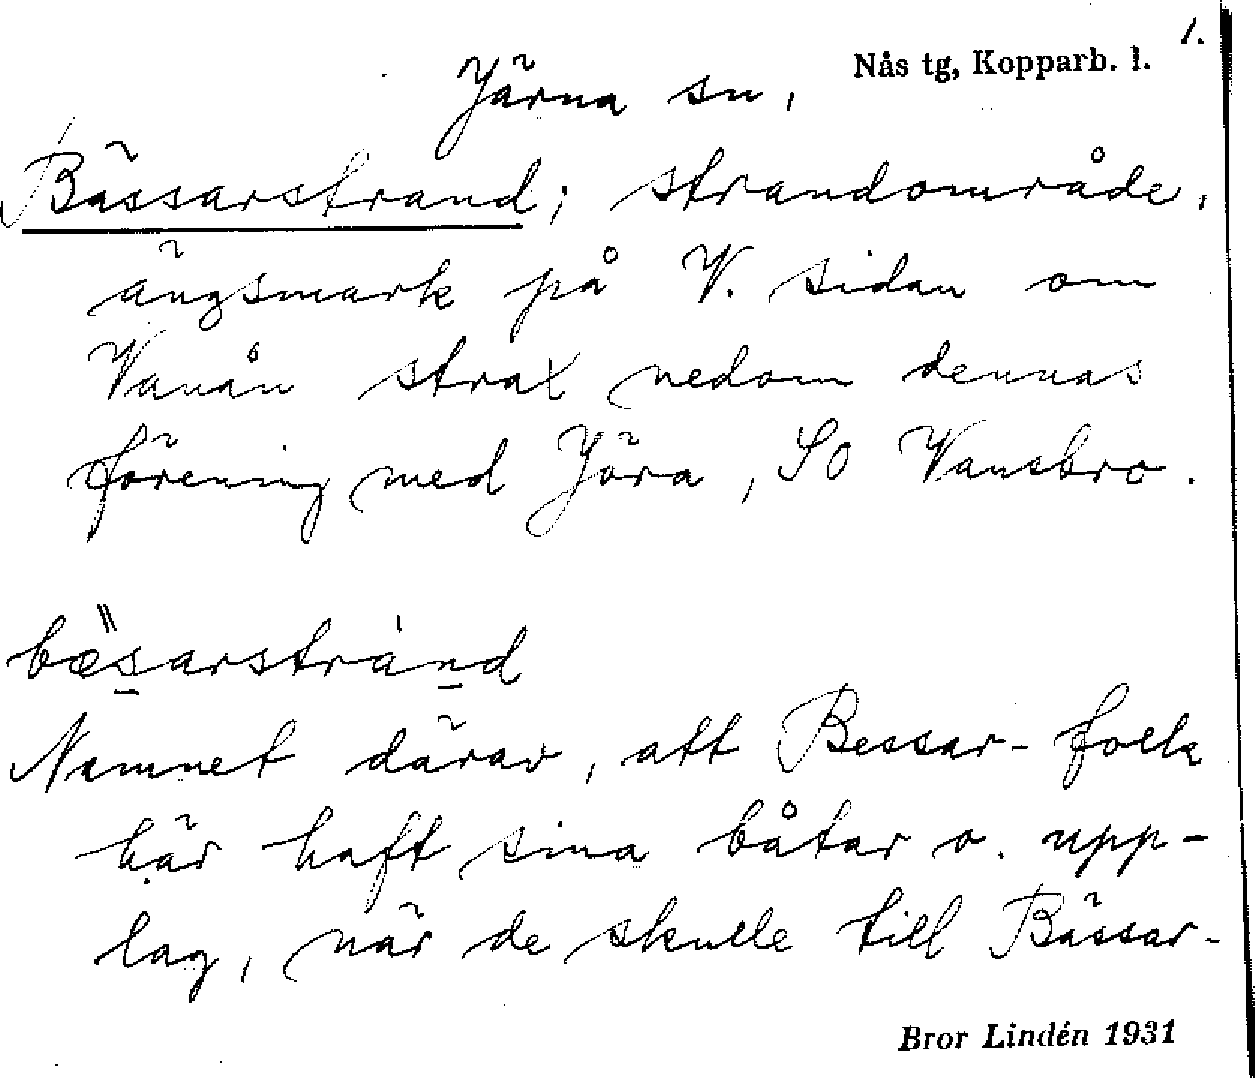 1.
Nås tg, Kopparb. l.
Järna sn,
Bässarstrand; strandområde,
ängsmark på V. sidan om
Vanån strax nedom dennas
förening med Jöra, SO Vansbro.
bæsarstránd
Namnet därav, att Bessar-folk
här haft sina båtar o. upp-
lag, när de skulle till Bässar-
Bror Lindén 1931